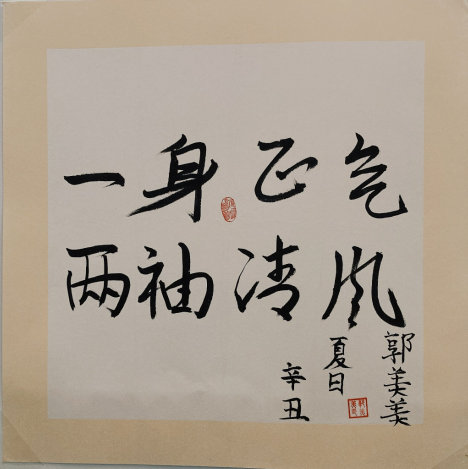 一身正气
两袖清风
辛丑
夏日
郭美美